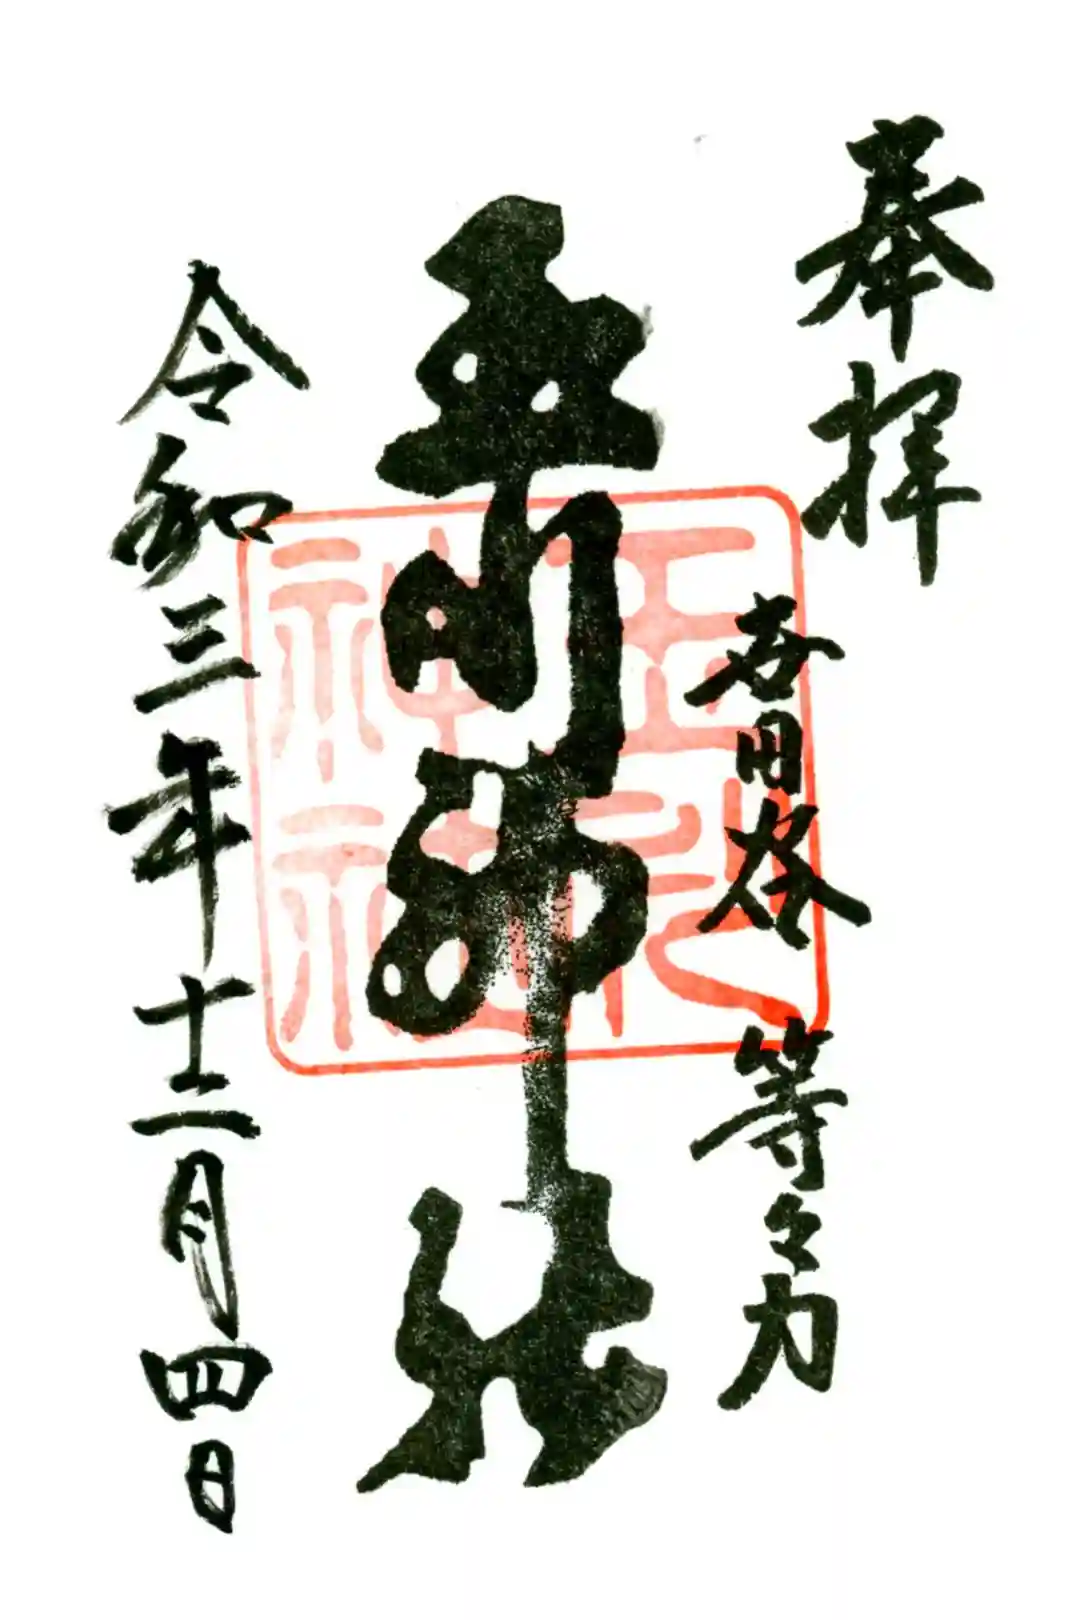 奉拝
世田谷 等々力
玉川神社
令和三年十二月四日
玉川
神社